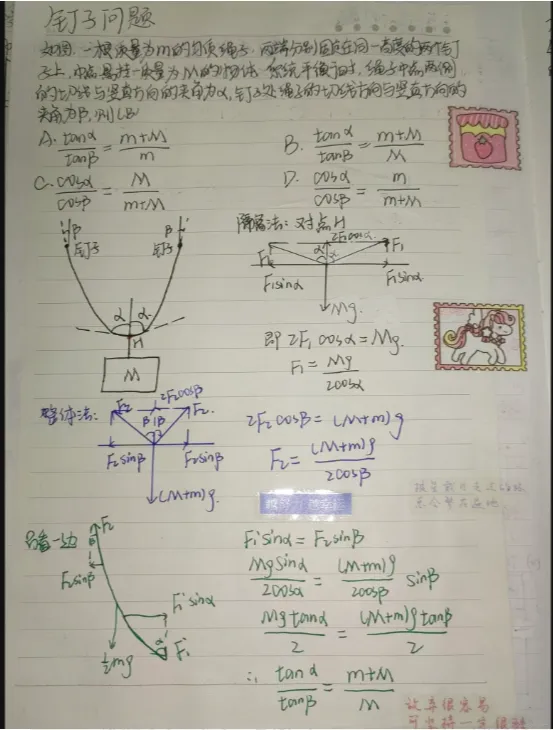 钉子问题
如图，一根质量为m的匀质绳子，两端分别固定在同一高度的两个钉
子上，中点悬挂一质量为M的物体，系统平衡时，绳子中点两侧
的切线与竖直方向的夹角为α，钉子处绳子的切线方向与竖直方向的
夹角为β，则（B）
A. tanα/tanβ = m+M/m
B. tanα/tanβ = m+M/M
C. cosα/cosβ = M/m+M
D. cosα/cosβ = m/m+M
β β
钉子 钉子
α α
H
M
隔离法：对点H
2F₁cosα
F₁ α α F₁
F₁sinα F₁sinα
Mg
即 2F₁cosα = Mg
F₁ = Mg/2cosα
整体法：
F₂ 2F₂cosβ F₂
β β
F₂sinβ F₂sinβ
(M+m)g
2F₂cosβ = (M+m)g
F₂ = (M+m)g/2cosβ
只看一边
F₂
β
F₂sinβ
F₁'sinα
α F₁'
½mg
F₁'sinα = F₂sinβ
Mgsinα/2cosα = (M+m)g/2cosβ sinβ
Mgtanα/2 = (M+m)gtanβ/2
∴ tanα/tanβ = m+M/M
放弃很容易